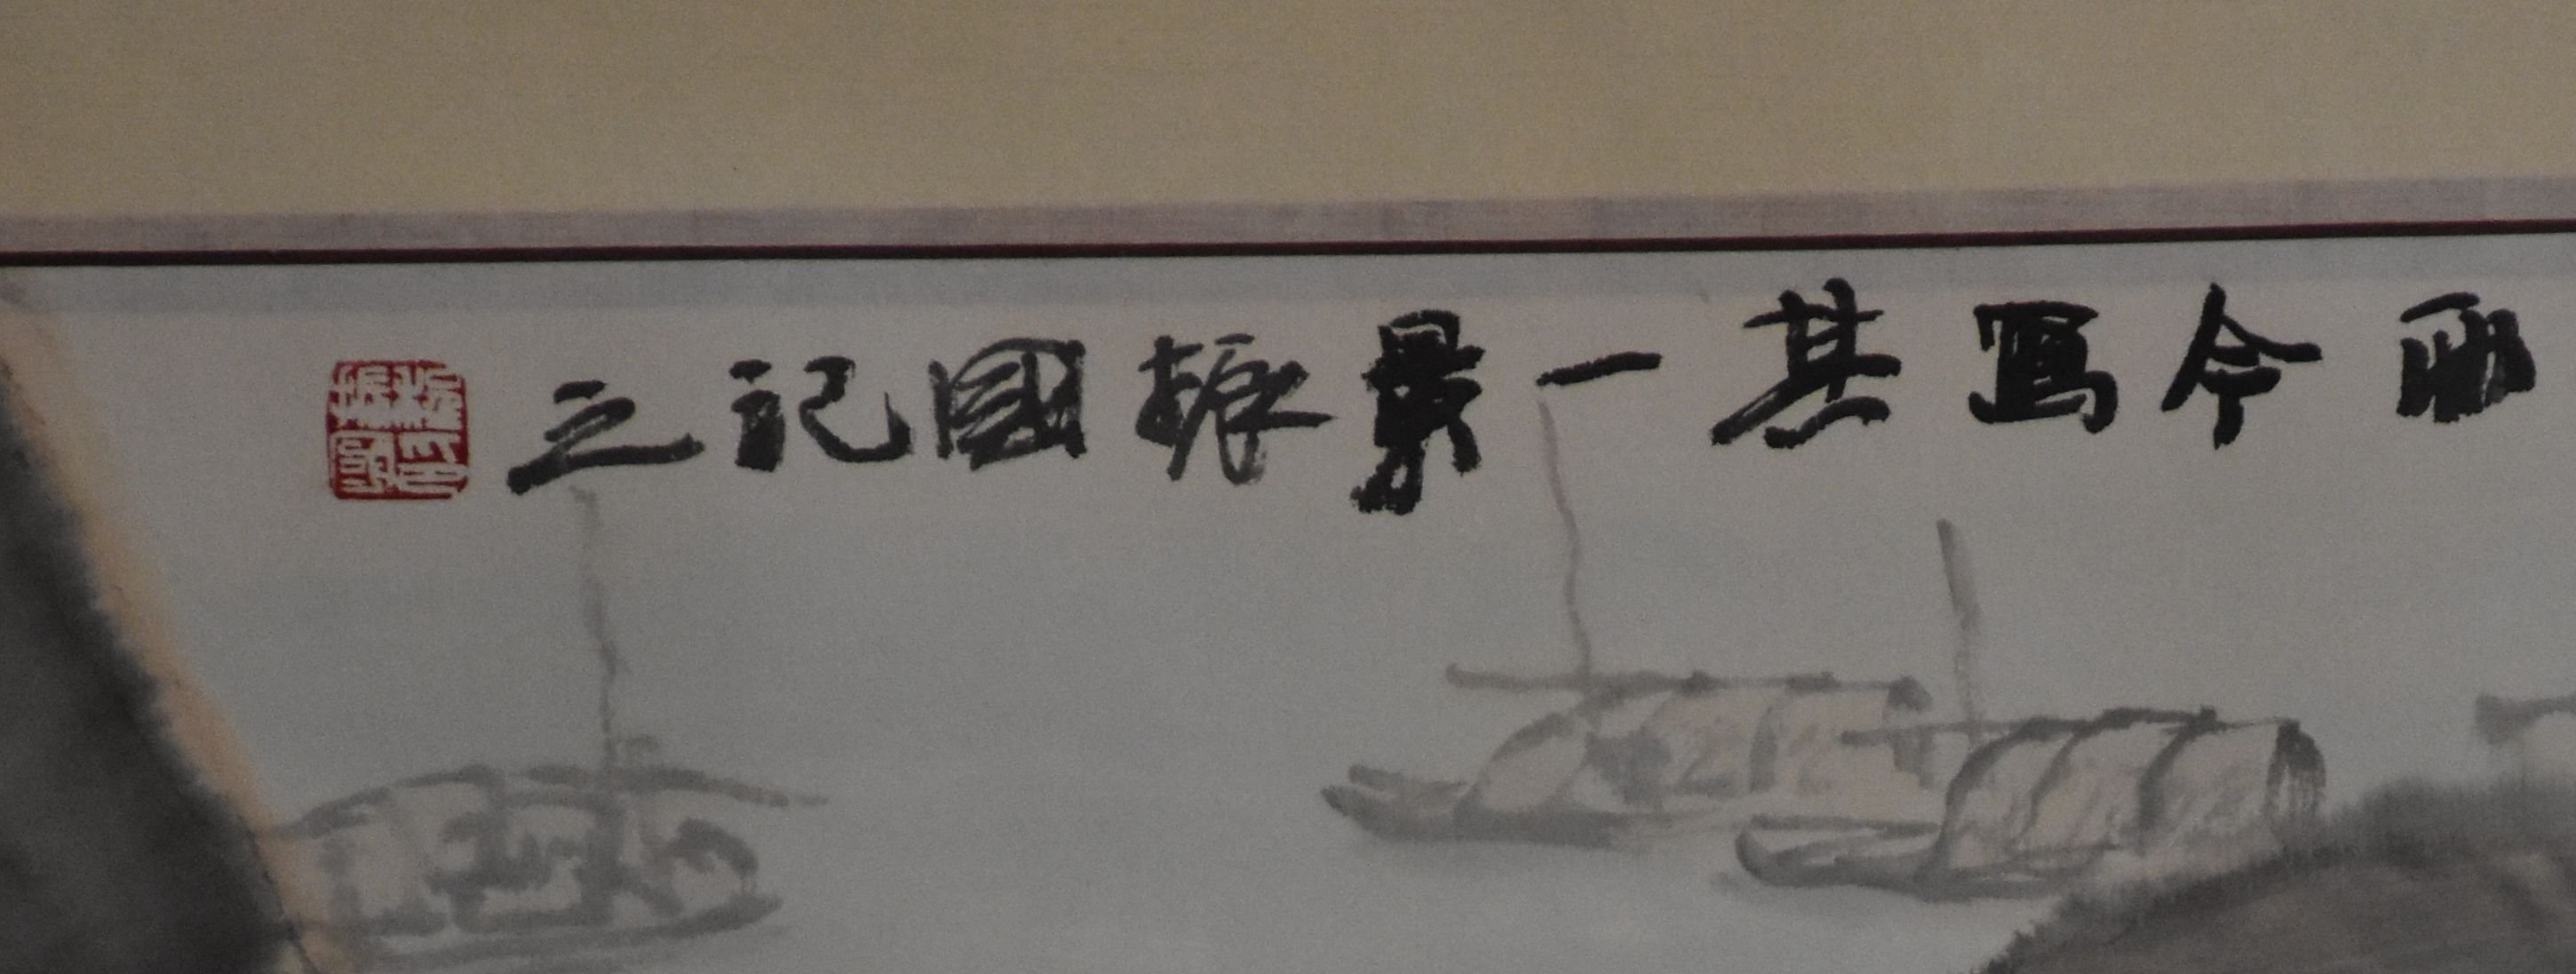 今寫其一景振國記之